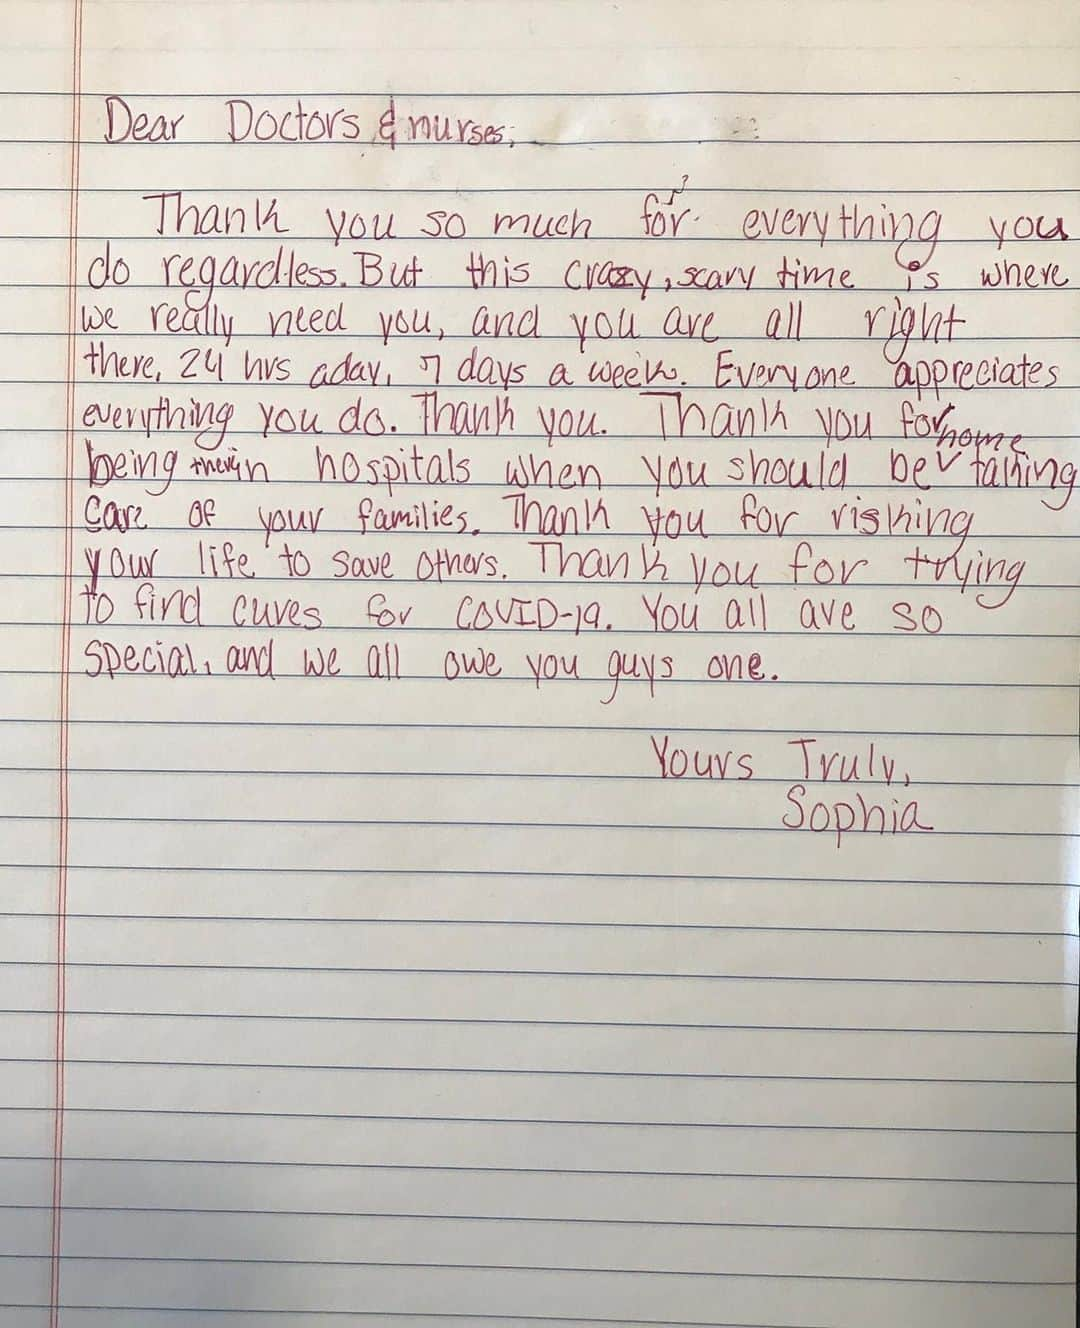 Dear Doctors & nurses,
Thank you so much for everything you
do regardless. But this crazy, scary time is where
we really need you, and you are all right
there, 24 hrs a day, 7 days a week. Everyone appreciates
everything you do. Thank you. Thank you for
being there in hospitals when you should be home taking
care of your families. Thank you for risking
your life to save others. Thank you for trying
to find cures for COVID-19. You all are so
special, and we all owe you guys one.
Yours Truly,
Sophia